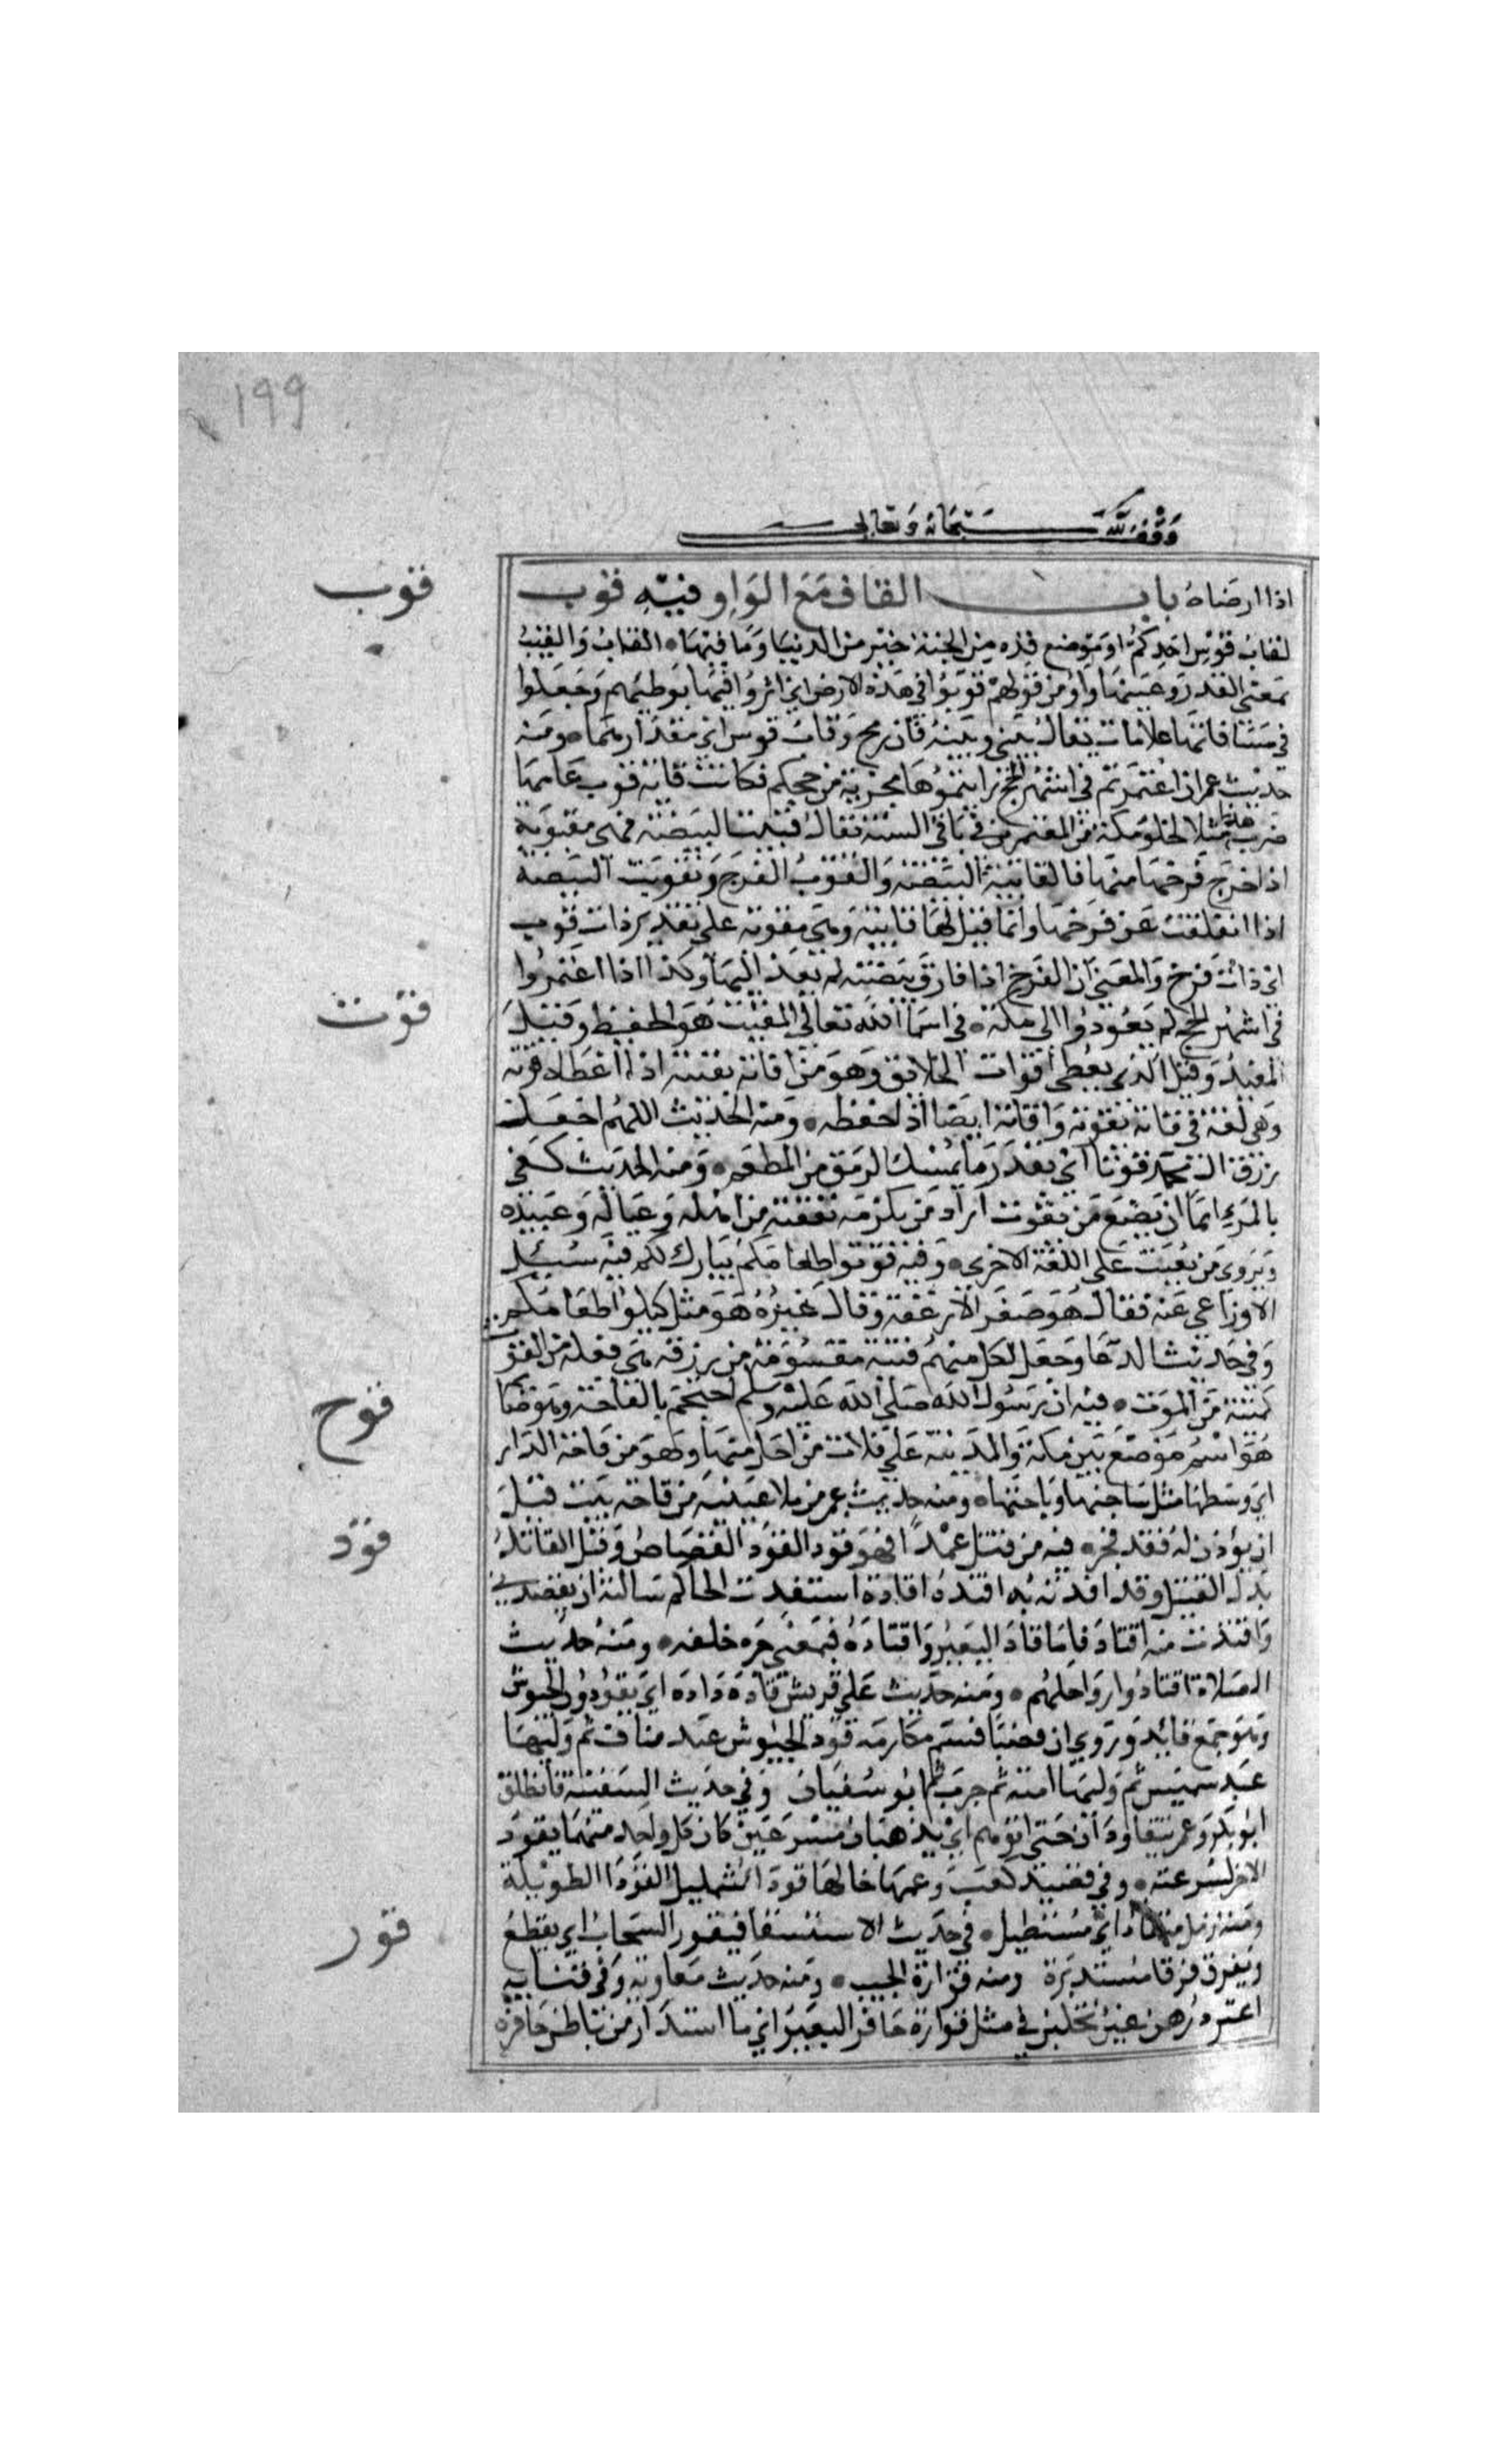 ١٩٩
وقف لله سبحانه وتعالى
اذا ارضاه باب القاف مع الواو فيه قوب
قوب
لقاب قوس احدكم او موضع قده من الجنة خير من الدنيا وما فيها • القاب والقيب
بمعنى القدر وعينها واو من قولهم قوبوا في هذه الارض اي اثروا فيها بوطئهم وجعلوا
في مسافاتها علامات يقال بيني وبينه قاب رمح وقاب قوس اي مقدارهما • ومنه
حديث عمر ان اعتمرتم في اشهر الحج رايتموها مجزية من حجكم فكانت قايبة قوب عامها
ضرب هذا مثلا لخلو مكة من المعتمرين في باقي السنة يقال قيبت البيضة فهي مقوبة
اذا خرج فرخها منها فالقايبة البيضة والقوب الفرخ وتقوبت البيضة
اذا انفلقت عن فرخها وانما قيل لها قايبة وهي مقوبة على تقدير ذات قوب
اي ذات فرخ والمعنى ان الفرخ اذا فارق بيضته لم يعد اليها وكذا اذا اعتمروا
في اشهر الحج لم يعودوا الى مكة • في اسماء الله تعالى المقيت هو الحفيظ وقيل
قوت
المقتدر وقيل الذي يعطي اقوات الخلائق وهو من اقاته يقيته اذا اعطاه قوته
وهي لغة في قاته يقوته واقاته ايضا اذا حفظه • ومنه الحديث اللهم اجعل
رزق ال محمد قوتا اي بقدر ما يمسك الرمق من المطعم • ومنه الحديث كفى
بالمرء اثما ان يضيع من يقوت اراد من يلزمه نفقته من اهله وعياله وعبيده
ويروى من يقيت على اللغة الاخرى • وفيه قوتوا طعامكم يبارك لكم فيه سئل
الاوزاعي عنه فقال هو صغر الارغفة وقال غيره هو مثل كيلوا طعامكم
وفي حديث الدعا وجعل لكل منهم قيتة مقسومة من رزقه هي فعلة من القوت
كميتة من الموت • فيه ان رسول الله صلى الله عليه وسلم احتجم بالقاحة وهو صائم
قوح
هو اسم موضع بين مكة والمدينة على ثلاث مراحل منها وهو من قاحة الدار
اي وسطها مثل ساحتها وباحتها • ومنه حديث عمر من ملا عينيه من قاحة بيت قبل
ان يؤذن له فقد فجر • فيه من قتل عمدا فهو قود القود القصاص وقتل القاتل
قود
بدل القتيل وقد اقدته به اقيده اقادة استقدت الحاكم سالته ان يقيدني
واقتدت منه اقتاد فاما قاد البعير واقتاده فبمعنى جره خلفه • ومنه حديث
الصلاة اقتادوا رواحلهم • ومنه حديث علي قريش قادة ذادة اي يقودون الجيوش
وهو جمع قائد وروي ان قصيا قسم مكارمه فقود الجيوش عبد مناف ثم وليها
عبد شمس ثم وليها امية ثم حرب ثم ابو سفيان وفي حديث السقيفة فانطلق
ابو بكر وعمر يتقاودان حتى اتوهم اي يذهبان مسرعين كان كل واحد منهما يقود
الاخر لسرعته • وفي قصيد كعب وعمها خالها قوداء شمليل القوداء الطويلة
ومنه رمل منقاد اي مستطيل • في حديث الاستسقا فيقور السحاب اي يقطع
قور
ويفرق فرقا مستديرة ومنه قوارة الجيب • ومنه حديث معاوية وفي فنايه
اعنز درهن غبر تحلبن في مثل قوارة حافر البعير اي ما استدار من باطن حافره